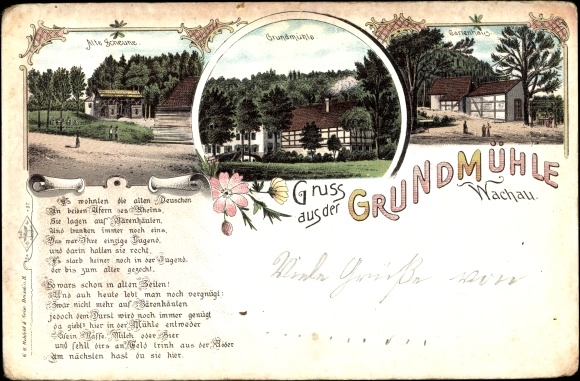 Alte Scheune.
Grundmühle.
Gartenhaus.
Gruss
aus der
GRUNDMÜHLE
Wachau.
Es wohnten die alten Deutschen
An beiden Ufern des Rheins,
Sie lagen auf Bärenhäuten,
Und tranken immer noch eins,
Das war Ihre einzige Tugend,
und darin hatten sie recht,
Es starb keiner noch in der Jugend,
der bis zum alter gezecht.
So wars schon in alten Zeiten!
Und auch heute lebt man noch vergnügt:
Zwar nicht mehr auf Bärenhäuten
jedoch dem Durst wird noch immer genügt
da giebts hier in der Mühle entweder
Wein, Kaffe, Milch oder Bier
und fehlt dirs an Geld trink aus der Röder
am nächsten hast du sie hier.
Viele Grüße von